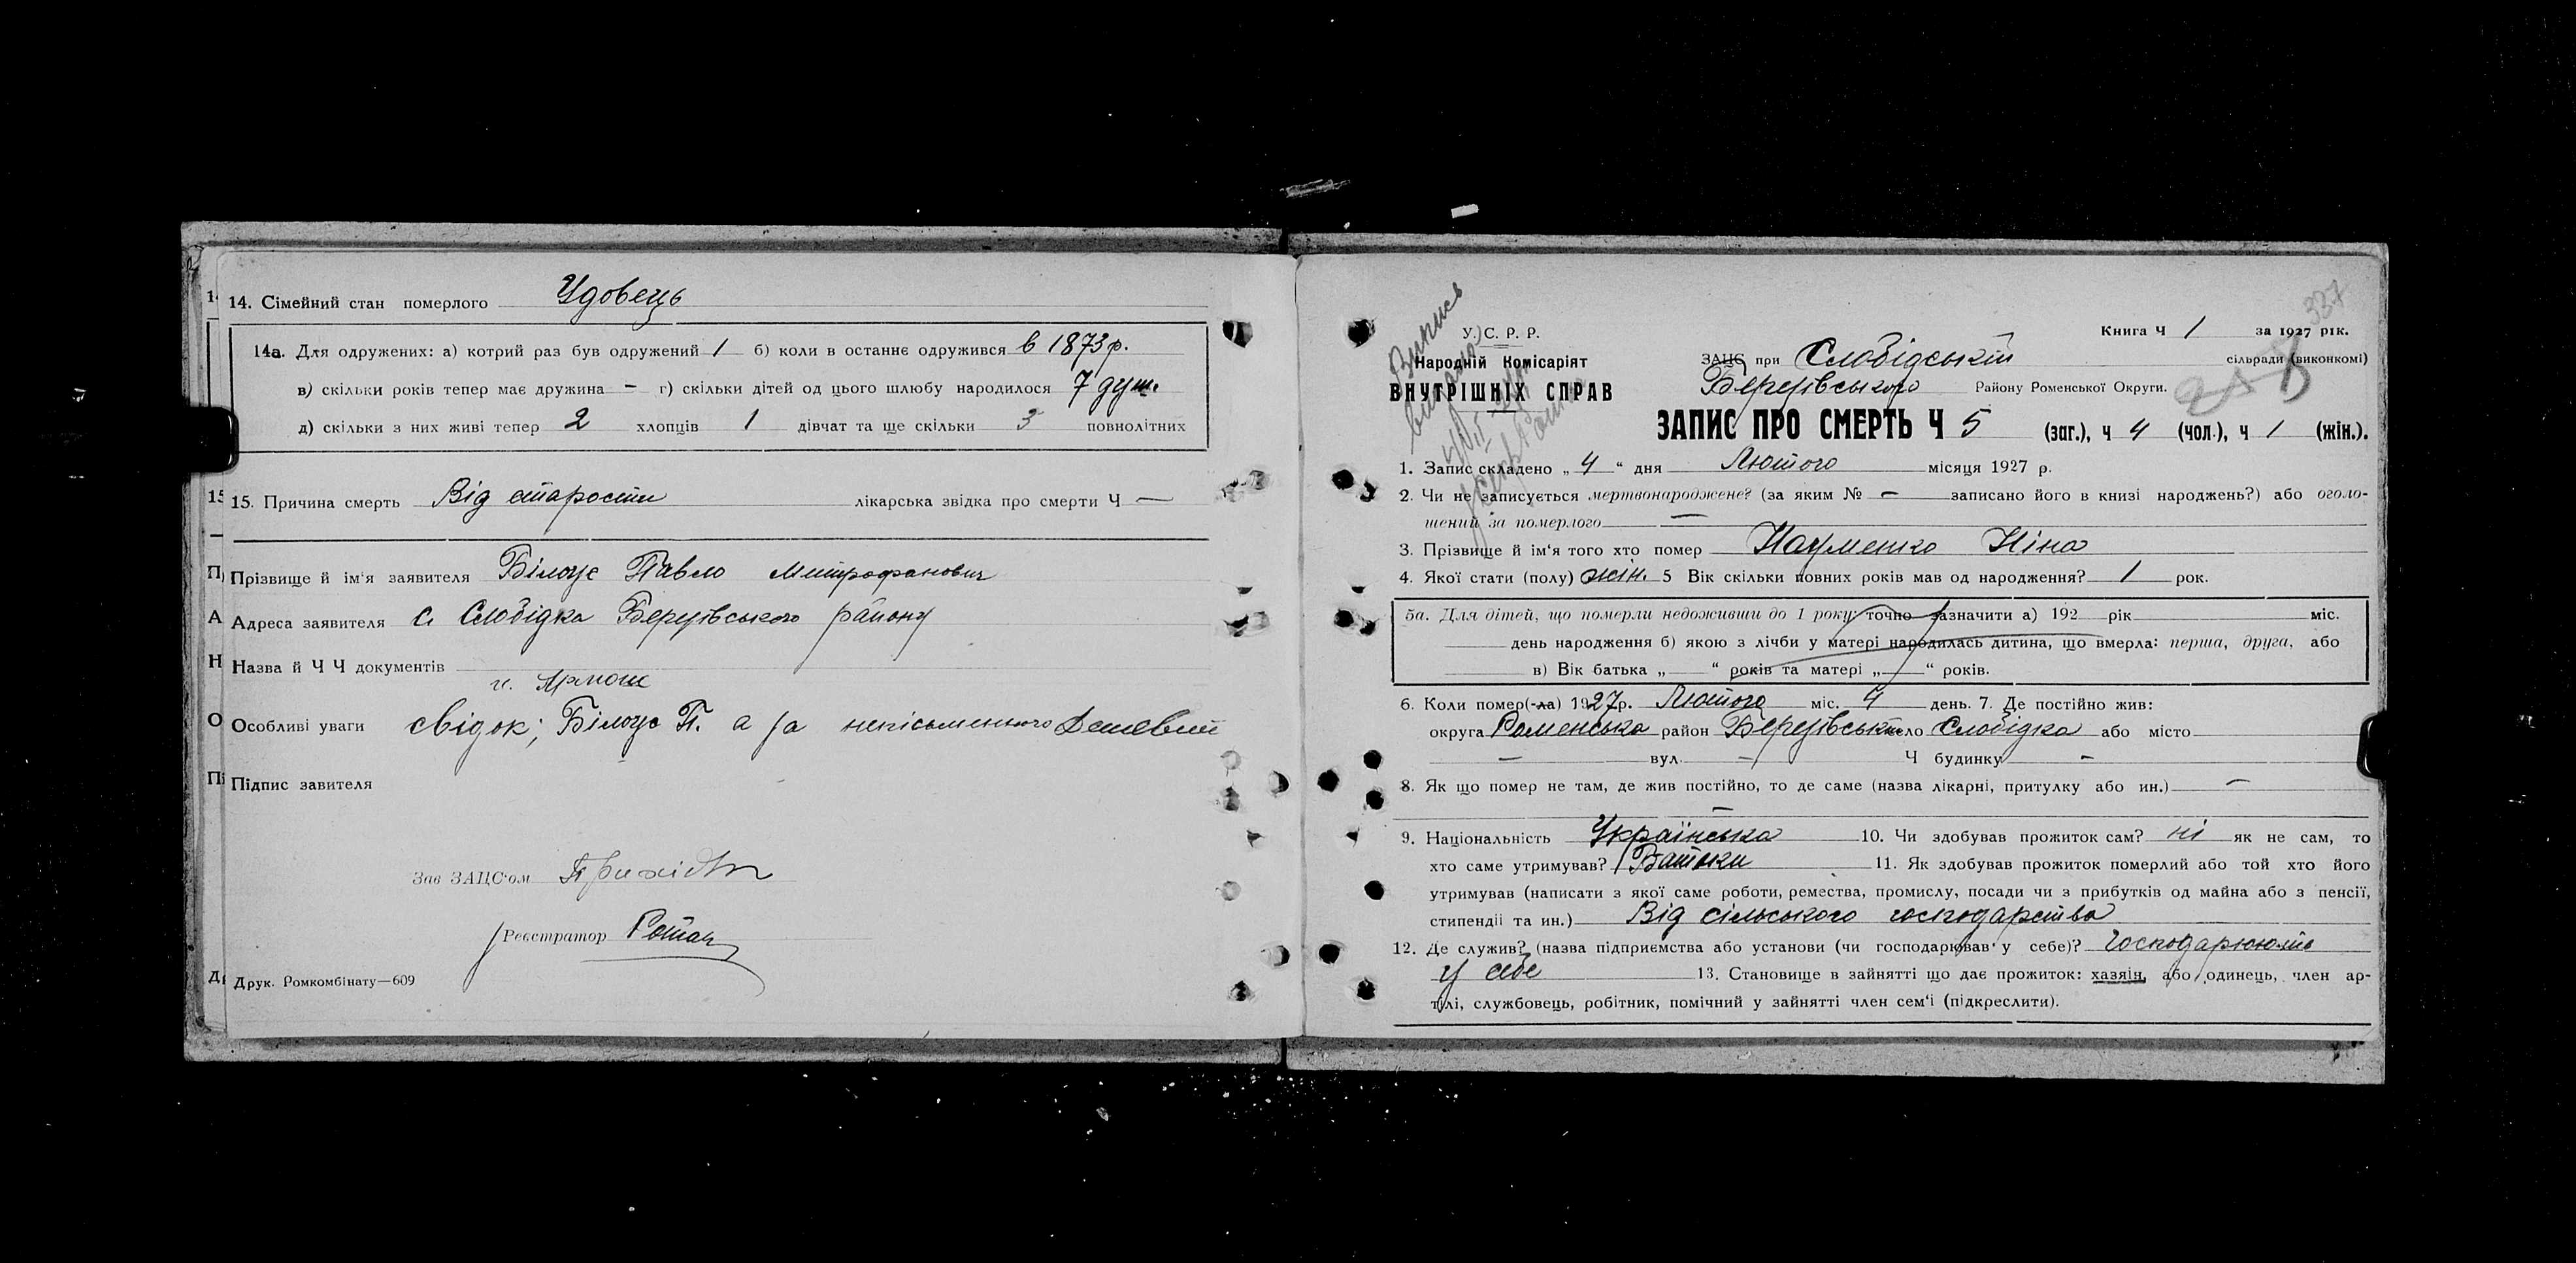 14. Сімейний стан померлого Удовець
14а. Для одружених: а) котрий раз був одружений 1 б) коли в останнє одружився в 1873 р.
в) скільки років тепер має дружина – г) скільки дітей од цього шлюбу народилося 7 душ.
д) скільки з них живі тепер 2 хлопців 1 дівчат та ще скільки 3 повнолітних
15. Причина смерть Від старости лікарська звідка про смерти Ч —
Прізвище й ім'я заявителя Білоус Павло Митрофанович
Адреса заявителя с. Слобідка Березівського району
Назва й Ч Ч документів
Особливі уваги свідок; Білоус П. а за неписьменного
Підпис завителя
Зав ЗАЦС'ом
Реєстратор Ротач
Друк. Ромкомбінату—609
337
У. С. Р. Р.
Народній Комісаріят
ВНУТРІШНІХ СПРАВ
Випись
Книга Ч 1 за 1927 рік.
ЗАЦС при Слобідській сільради (виконкомі)
Березівського Району Роменської Округи.
ЗАПИС ПРО СМЕРТЬ Ч 5 (заг.), ч 4 (чол.), ч 1 (жін.).
1. Запис складено „ 4 “ дня Лютого місяця 1927 р.
2. Чи не записується мертвонароджене? (за яким № – записано його в книзі народжень?) або оголо-
шений за померлого —
3. Прізвище й ім'я того хто помер Науменко Ніна
4. Якої стати (полу) жін. 5 Вік скільки повних років мав од народження? 1 рок.
5а. Для дітей, що померли недоживши до 1 року: точно зазначити а) 192 рік міс.
день народження б) якою з лічби у матері народилась дитина, що вмерла: перша, друга, або
в) Вік батька „ “ років та матері „ “ років.
6. Коли помер(-ла) 1927р. Лютого міс. 4 день. 7. Де постійно жив:
округа Роменська район Березівський село Слобідка або місто
– вул. – Ч будинку –
8. Як що помер не там, де жив постійно, то де саме (назва лікарні, притулку або ин.) –
–
9. Національність Українська 10. Чи здобував прожиток сам? ні як не сам, то
хто саме утримував? Батьки 11. Як здобував прожиток померлий або той хто його
утримував (написати з якої саме роботи, ремества, промислу, посади чи з прибутків од майна або з пенсії,
стипендії та ин.) Від сільського господарства
12. Де служив? (назва підприємства або установи (чи господарював у себе)? Господарюють
у себе 13. Становище в зайнятті що дає прожиток: хазяін, або одинець, член ар-
тілі, службовець, робітник, помічний у зайнятті член сем'ї (підкреслити).